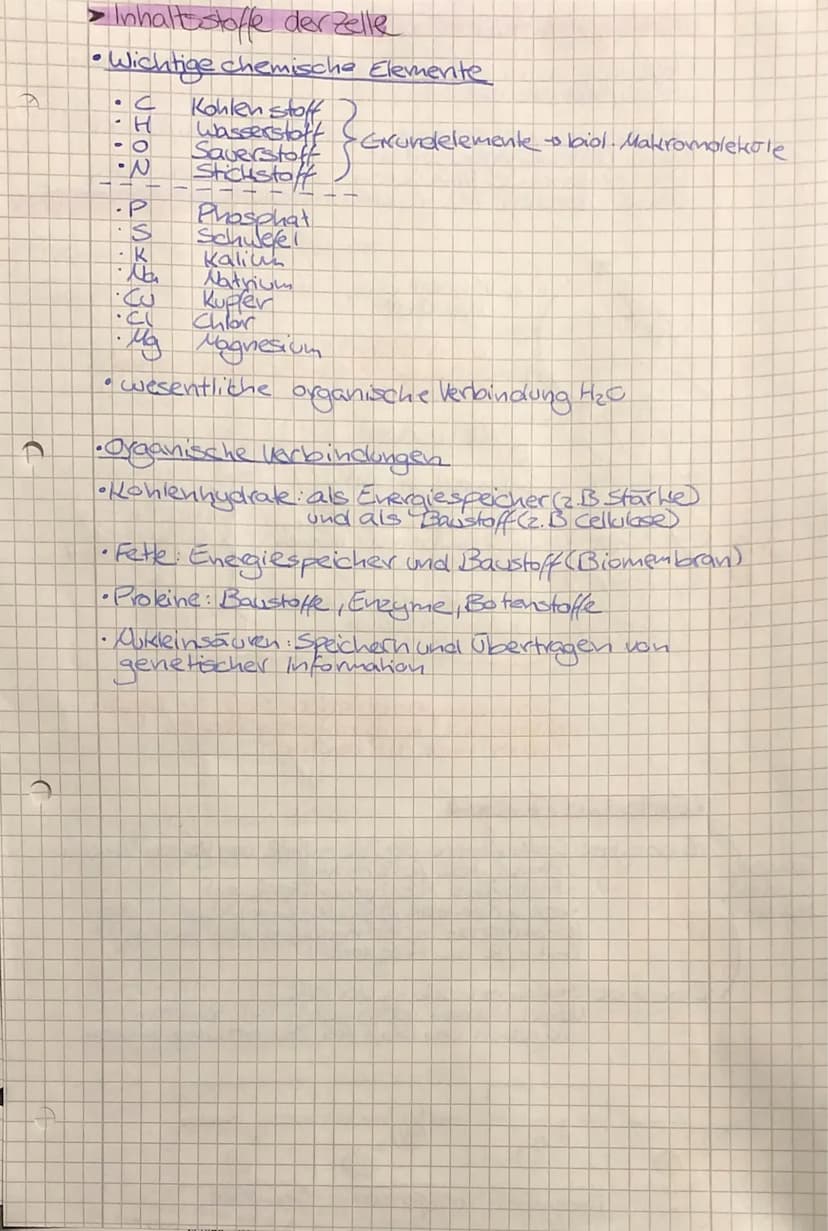 ➤ Inhaltsstoffe der Zelle
• Wichtige chemische Elemente
• C Kohlenstoff
• H Wasserstoff
• O Sauerstoff
• N Stickstoff
Grundelemente → biol. Makromoleküle
• P Phosphat
• S Schwefel
• K Kalium
• Na Natrium
• Cu Kupfer
• Cl Chlor
• Mg Magnesium
• wesentliche organische Verbindung H₂O
• Organische Verbindungen
• Kohlenhydrate: als Energiespeicher (z.B Stärke)
und als Baustoff (z.B Cellulose)
• Fette: Energiespeicher und Baustoff (Biomembran)
• Proteine: Baustoffe, Enzyme, Botenstoffe
• Nukleinsäuren: Speichern und Übertragen von
genetischer Information